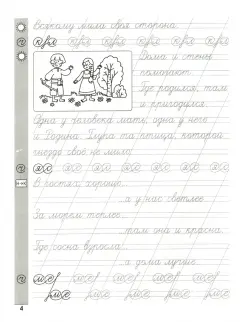 Всякому мила своя сторона.
Дома и стены
помогают.
Где родился, там
и пригодился.
Одна у человека мать, одна у него
и Родина. Глупа та птица, которой
гнездо своё не мило.
В гостях хорошо...
...а у нас светлее.
За морем теплее...
...там она и красна.
Где сосна взросла...
...а дома лучше.
4